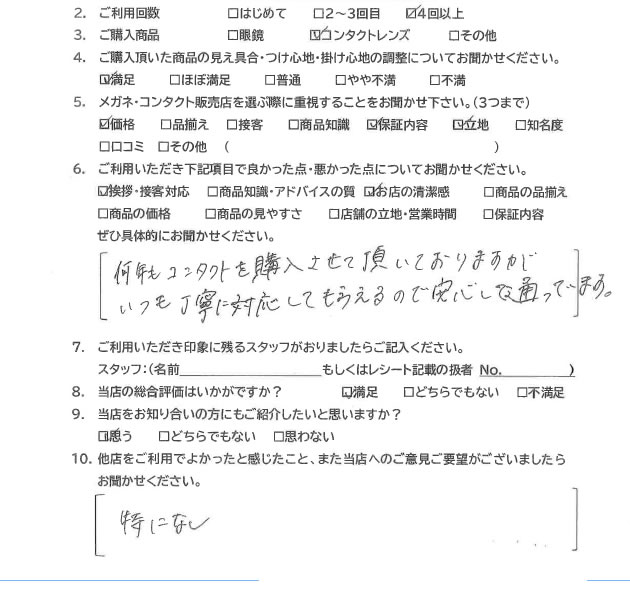 2. ご利用回数 □はじめて □2～3回目 ☑4回以上
3. ご購入商品 □眼鏡 ☑コンタクトレンズ □その他
4. ご購入頂いた商品の見え具合・つけ心地・掛け心地の調整についてお聞かせください。
☑満足 □ほぼ満足 □普通 □やや不満 □不満
5. メガネ・コンタクト販売店を選ぶ際に重視することをお聞かせ下さい。(3つまで)
☑価格 □品揃え □接客 □商品知識 ☑保証内容 ☑立地 □知名度
□口コミ □その他 ( )
6. ご利用いただき下記項目で良かった点・悪かった点についてお聞かせください。
☑挨拶・接客対応 □商品知識・アドバイスの質 ☑お店の清潔感 □商品の品揃え
□商品の価格 □商品の見やすさ □店舗の立地・営業時間 □保証内容
ぜひ具体的にお聞かせください。
何年もコンタクトを購入させて頂いておりますが
いつも丁寧に対応してもらえるので安心しな通っています。
7. ご利用いただき印象に残るスタッフがおりましたらご記入ください。
スタッフ:(名前 もしくはレシート記載の扱者 No. )
8. 当店の総合評価はいかがですか？ ☑満足 □どちらでもない □不満足
9. 当店をお知り合いの方にもご紹介したいと思いますか？
☑思う □どちらでもない □思わない
10. 他店をご利用でよかったと感じたこと、また当店へのご意見ご要望がございましたら
お聞かせください。
特になし